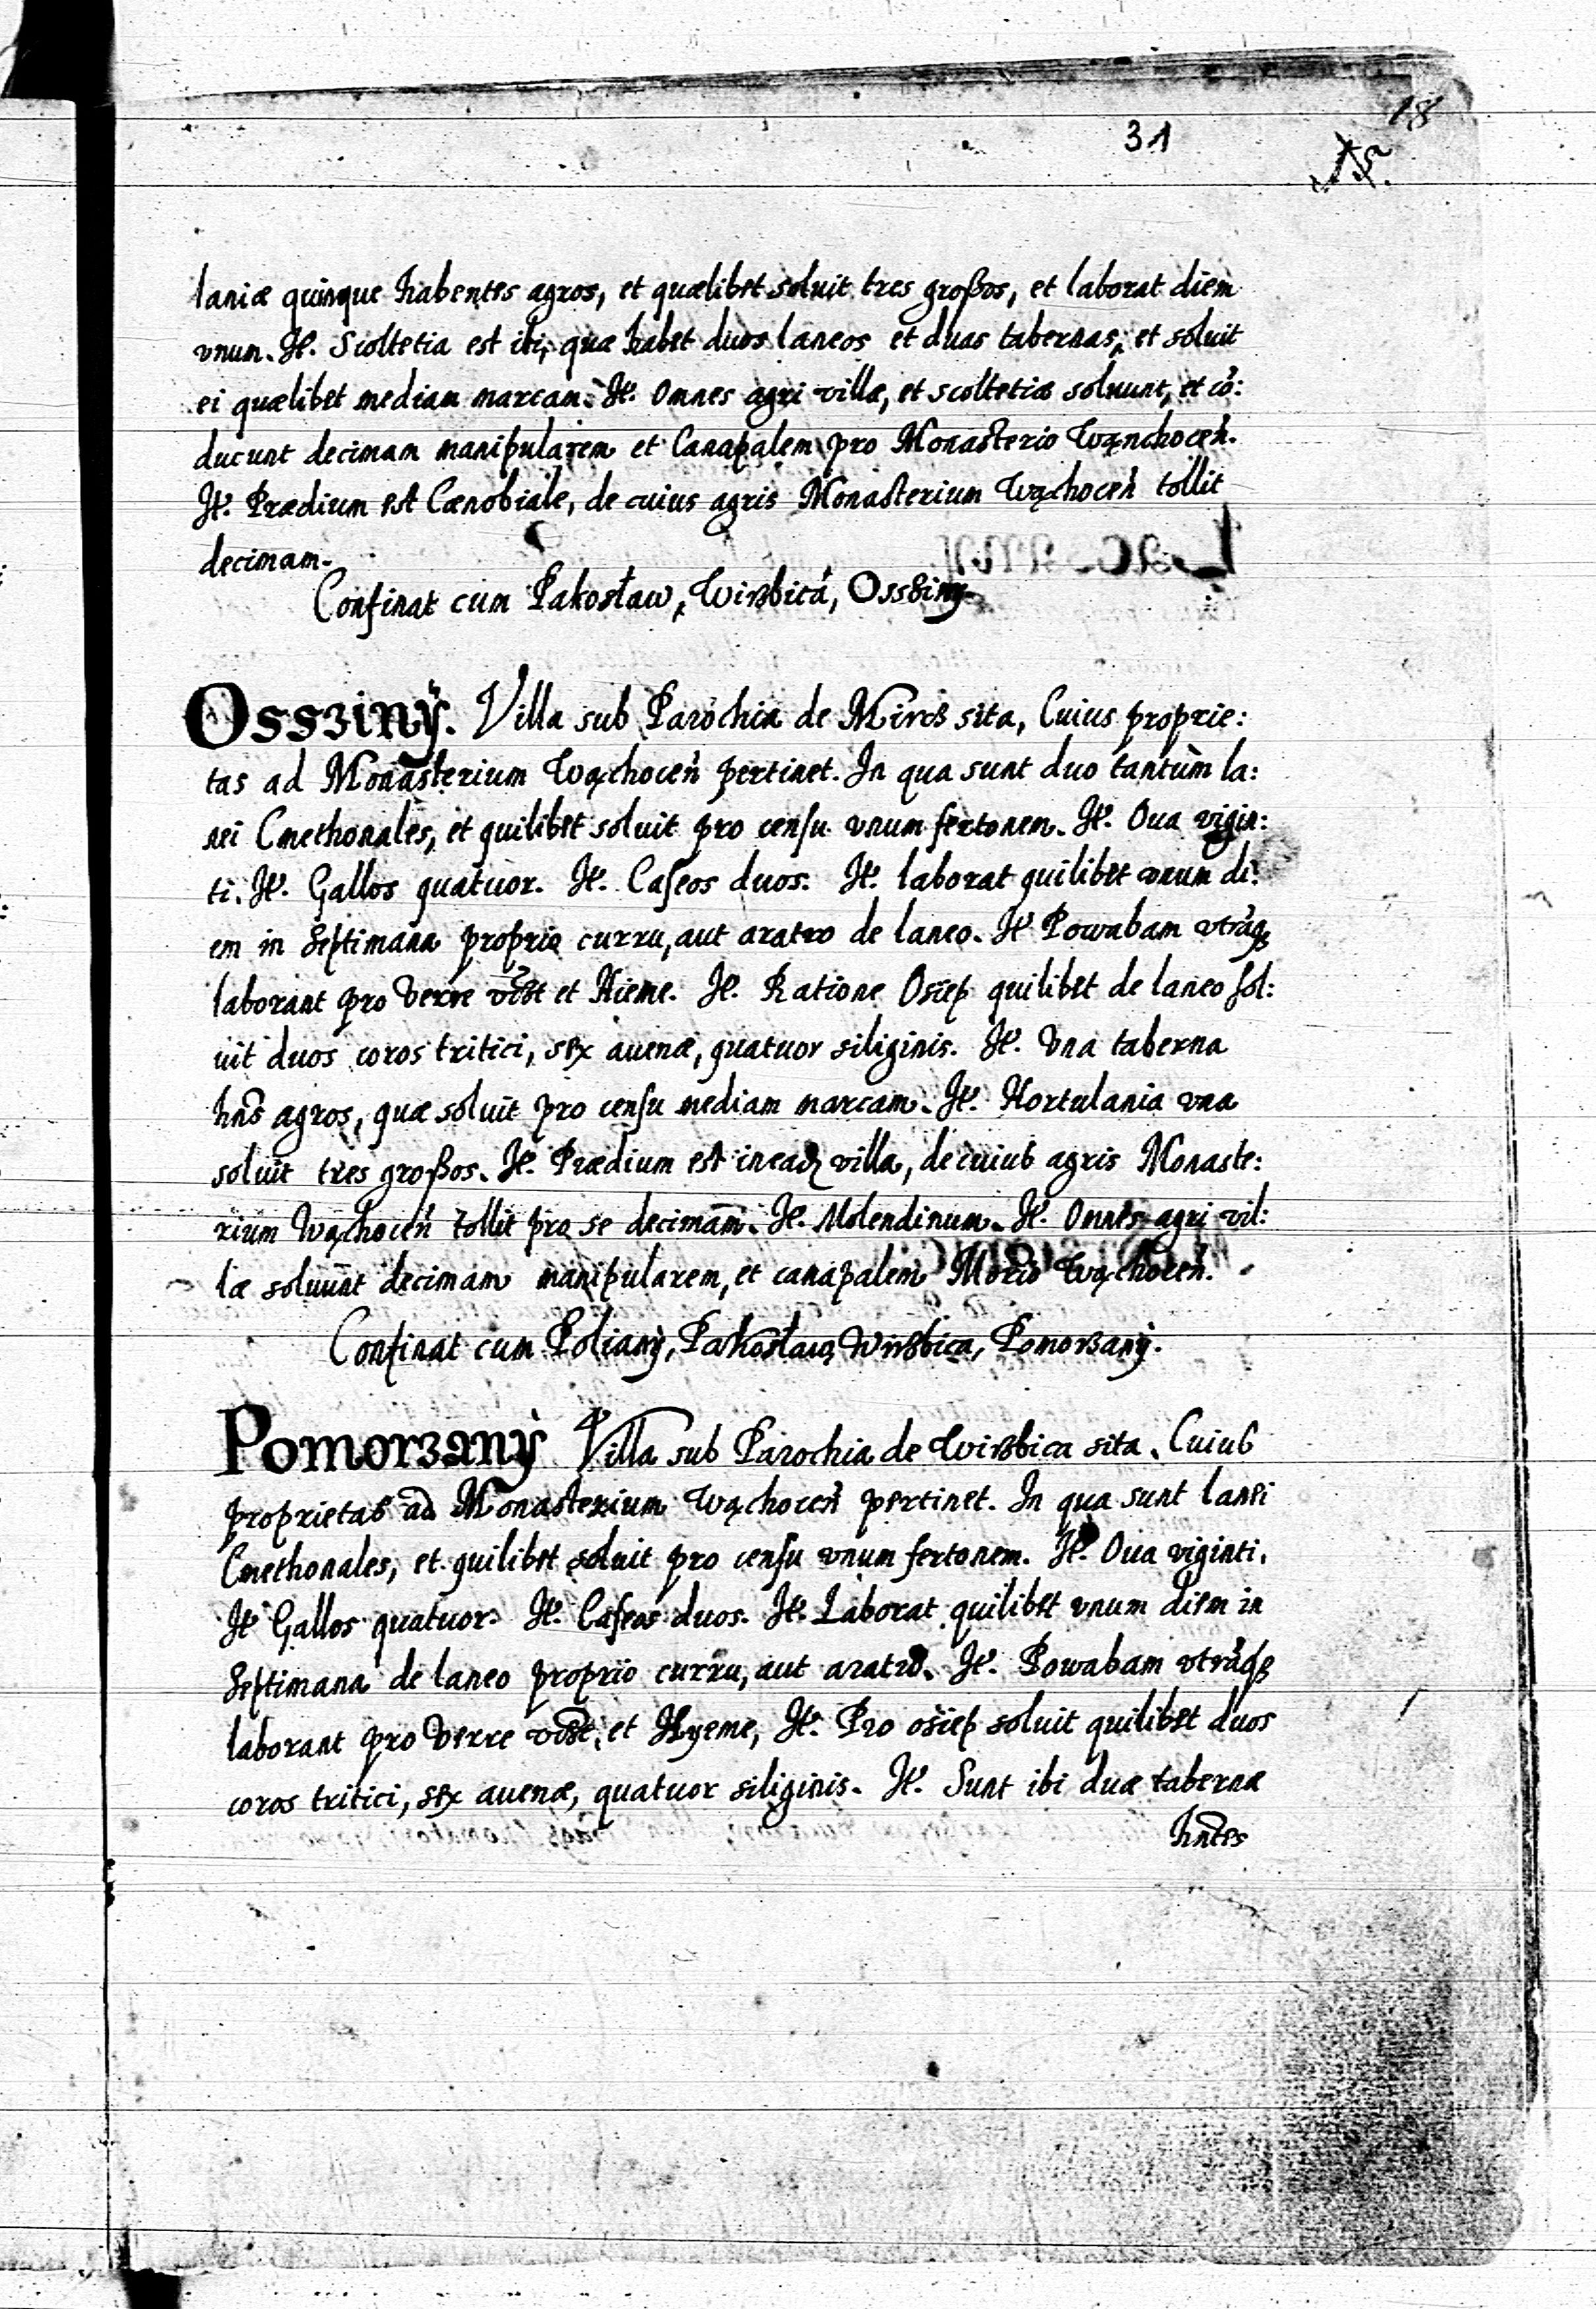 31
18
15.
laniæ quinque habentes agros, et quælibet soluit tres großos, et laborat diem
vnum. It. Scoltetia est ibi, quæ habet duos laneos et duas tabernas, et soluit
ei quælibet mediam marcam. It. Omnes agri villæ, et scoltetiæ soluunt, et cō:
ducunt decimam manipularem et Canapalem pro Monasterio Wąnchoceń.
It. Prædium est Cænobiale, de cuius agris Monasterium Wąchoceń tollit
decimam.
Confinat cum Pakosław, Wirzbica, Ossziny.
Ossziny. Villa sub Parochia de Mircz sita, Cuius proprie:
tas ad Monasterium Wąchoceń pertinet. In qua sunt duo tantùm la:
nei Cmethonales, et quilibet soluit pro censu vnum fertonem. It. Oua vigin:
ti. It. Gallos quatuor. It. Caseos duos. It. laborat quilibet vnum di:
em in Septimana proprio curru, aut aratro de laneo. It Powabam vtrāqz
laborant pro Verre videlt et Hieme. It. Ratione Osiep quilibet de laneo sol:
uit duos coros tritici, sex auenæ, quatuor siliginis. It. Vna taberna
hn̄s agros, quæ soluit pro censu mediam marcam. It. Hortulania vna
soluit tres großos. It. Prædium est in eadz villa, de cuius agris Monaste:
rium Wąchoceń tollit pro se decimam. It. Molendinum. It. Omnes agri vil:
læ soluunt decimam manipularem, et canapalem Mōrio Wąchoceń.
Confinat cum Poliany, Pakosław, Wirzbica, Pomorzany.
Pomorzany Villa sub Parochia de Wirzbica sita. Cuius
proprietas ad Monasterium Wąchoceń pertinet. In qua sunt lanei
Cmethonales, et quilibet soluit pro censu vnum fertonem. It. Oua viginti.
It Gallos quatuor. It. Caseos duos. It. Laborat quilibet vnum diem in
Septimana de laneo proprio curru, aut aratro. It. Powabam vtrāqz
laborant pro Verre videlt, et Hyeme, It. Pro osiep soluit quilibet duos
coros tritici, sex auenæ, quatuor siliginis. It. Sunt ibi duæ tabernæ
hn̄tes